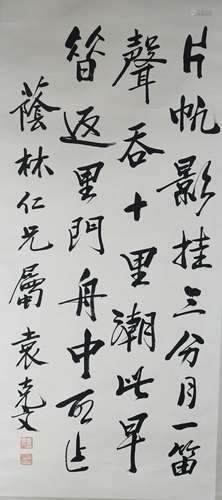 片帆影挂三分月一笛
聲吞十里潮此早
笛返里門舟中所作
蔭林仁兄屬 袁克文